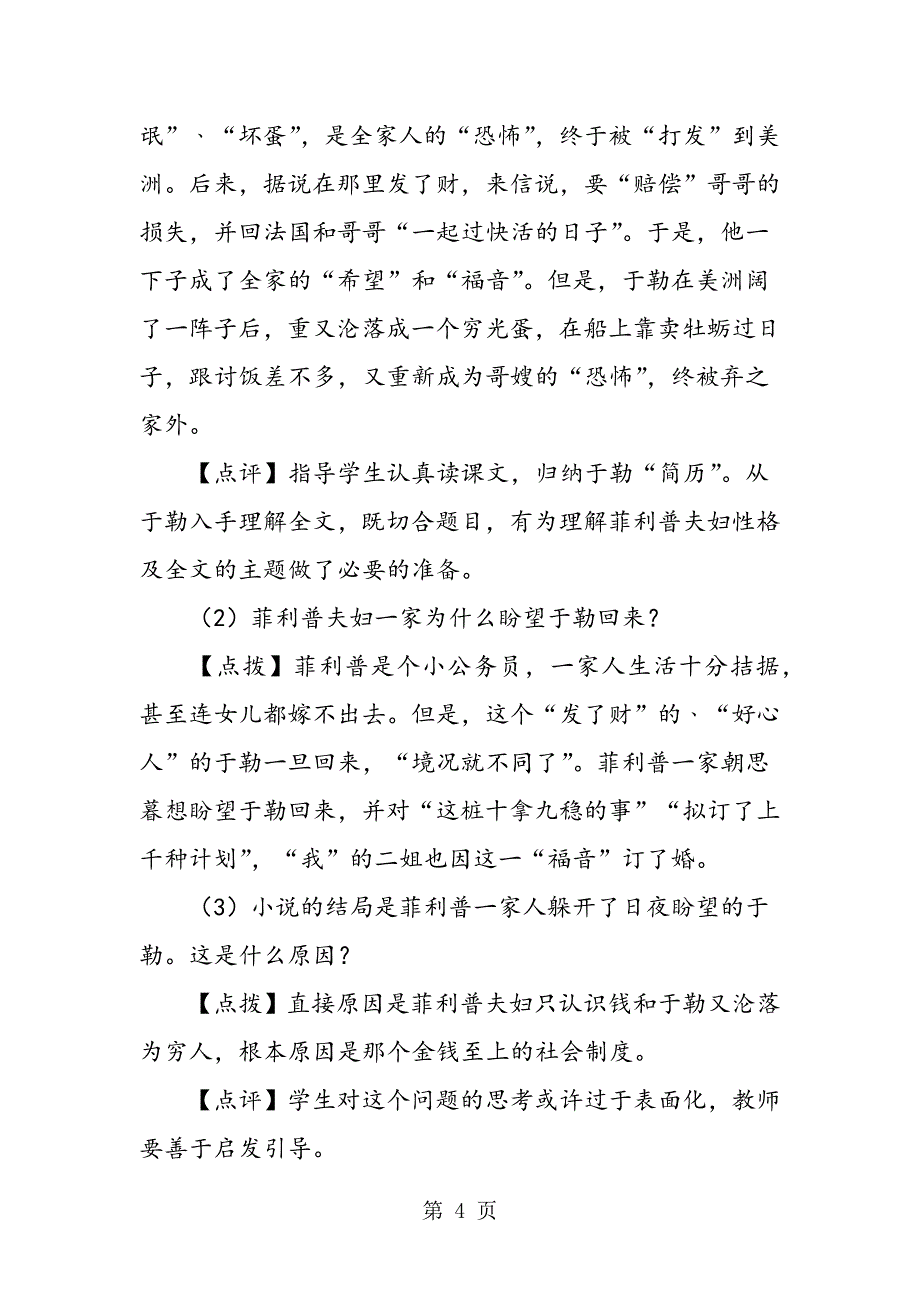 氓”、“坏蛋”，是全家人的“恐怖”，终于被“打发”到美
洲。后来，据说在那里发了财，来信说，要“赔偿”哥哥的
损失，并回法国和哥哥“一起过快活的日子”。于是，他一
下子成了全家的“希望”和“福音”。但是，于勒在美洲阔
了一阵子后，重又沦落成一个穷光蛋，在船上靠卖牡蛎过日
子，跟讨饭差不多，又重新成为哥嫂的“恐怖”，终被弃之
家外。
【点评】指导学生认真读课文，归纳于勒“简历”。从
于勒入手理解全文，既切合题目，有为理解菲利普夫妇性格
及全文的主题做了必要的准备。
（2）菲利普夫妇一家为什么盼望于勒回来？
【点拨】菲利普是个小公务员，一家人生活十分拮据，
甚至连女儿都嫁不出去。但是，这个“发了财”的、“好心
人”的于勒一旦回来，“境况就不同了”。菲利普一家朝思
暮想盼望于勒回来，并对“这桩十拿九稳的事”“拟订了上
千种计划”，“我”的二姐也因这一“福音”订了婚。
（3）小说的结局是菲利普一家人躲开了日夜盼望的于
勒。这是什么原因？
【点拨】直接原因是菲利普夫妇只认识钱和于勒又沦落
为穷人，根本原因是那个金钱至上的社会制度。
【点评】学生对这个问题的思考或许过于表面化，教师
要善于启发引导。
第 4 页